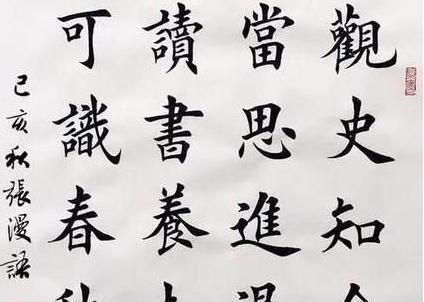 觀史知
當思進
讀書養
可識春
己亥秋張漫語